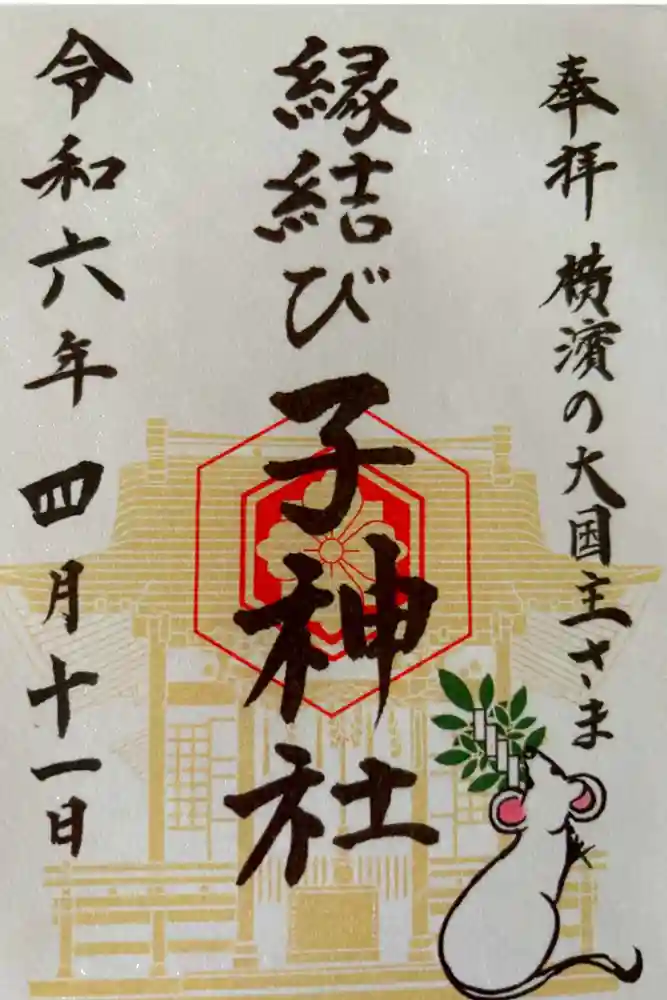 奉拝 横濱の大国主さま
縁結び子神社
令和六年四月十一日